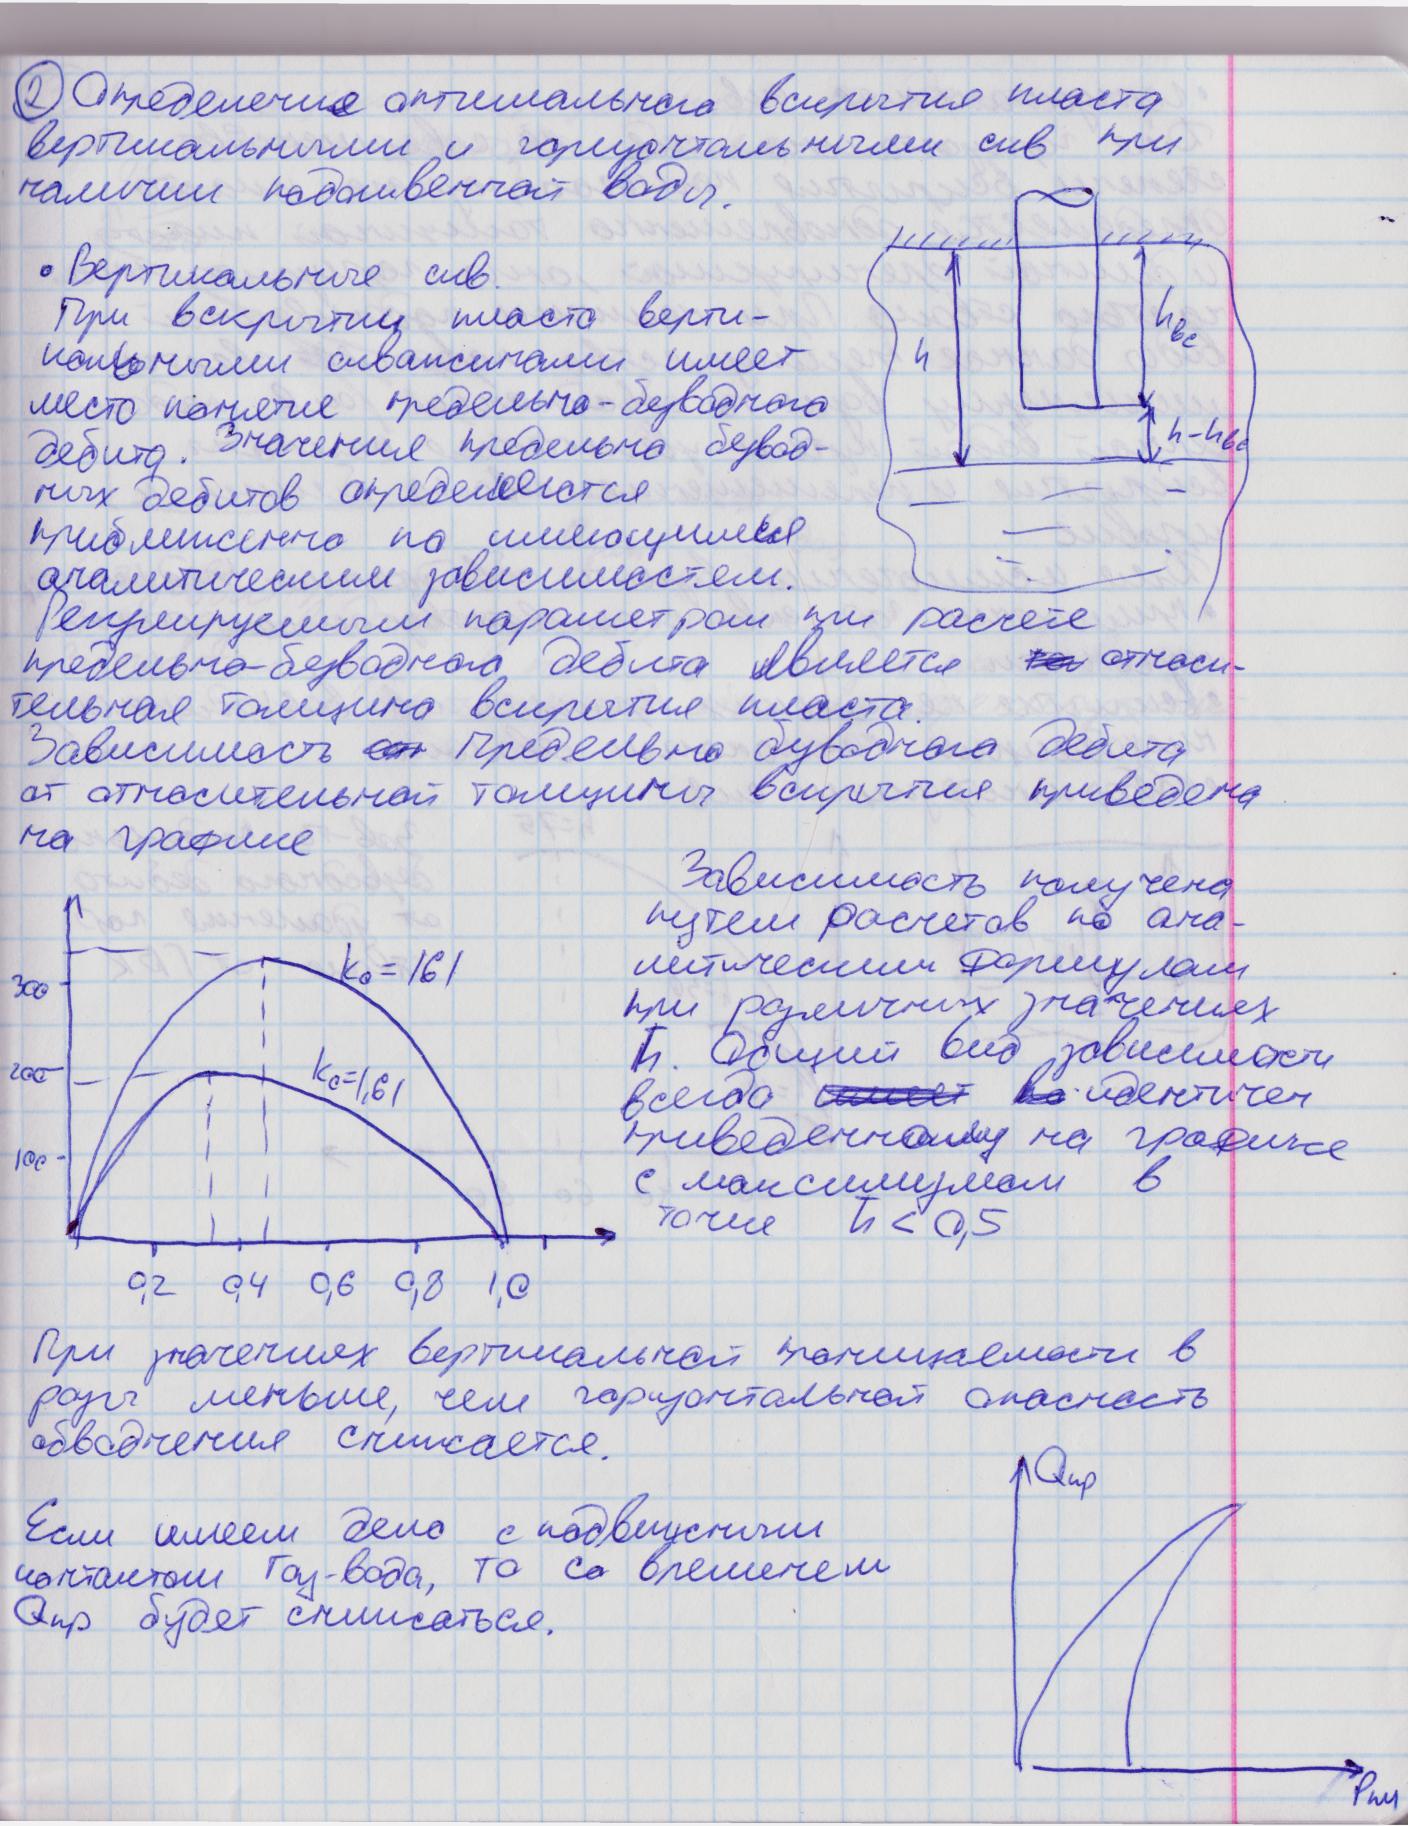 ② Определение оптимального вскрытия пласта
вертикальными и горизонтальными скв при
наличии подошвенной воды.
• Вертикальные скв.
При вскрытии пласта верти-
кальными скважинами имеет
место понятие предельно-безводного
дебита. Значения предельно безвод-
ных дебитов определяются
приближенно по имеющимися
аналитическим зависимостем.
Регулируемым параметром при расчете
предельно-безводного дебита является относи-
тельная толщина вскрытия пласта.
Зависимость предельно безводного дебита
от относительной толщины вскрытия приведена
на графике
h
hвс
h-hвс
Зависимость получена
путем расчетов по ана-
литическим формулам
при различных значениях
h̅. Общий вид зависимости
всегда идентичен
приведенному на графике
с максимумом в
точке h̅ < 0,5
300
200
100
k₀=161
k₀=1,61
0,2 0,4 0,6 0,8 1,0
При значениях вертикальной проницаемости в
разы меньше, чем горизонтальной опасность
обводнения снижается.
Если имеем дело с подвижным
контактом Газ-вода, то со временем
Qпр будет снижаться.
Qпр
Pпл